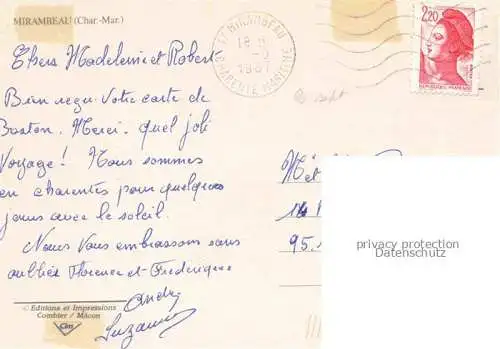 MIRAMBEAU (Char.-Mar.)
Chers Madeleine et Robert
Bien reçu votre carte de
Boston. Merci. quel joli
Voyage! Nous sommes
en charentes pour quelques
jours avec le soleil.
Nous Vous embrassons sans
oublier Florence et Frédérique
André
Suzanne
© Editions et Impressions
Combier / Mâcon
Cim
17 MIRAMBEAU
18 H
1987
CHARENTE MARITIME
2,20
REPUBLIQUE FRANCAISE
14
95.
privacy protection
Datenschutz